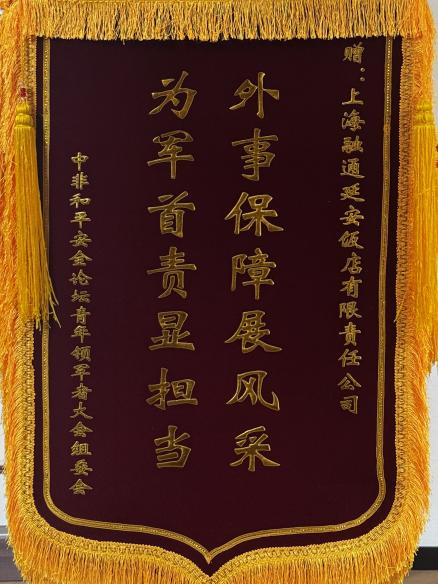 赠：上海融通延安饭店有限责任公司
外事保障展风采
为军首责显担当
中非和平安全论坛青年领军者大会组委会